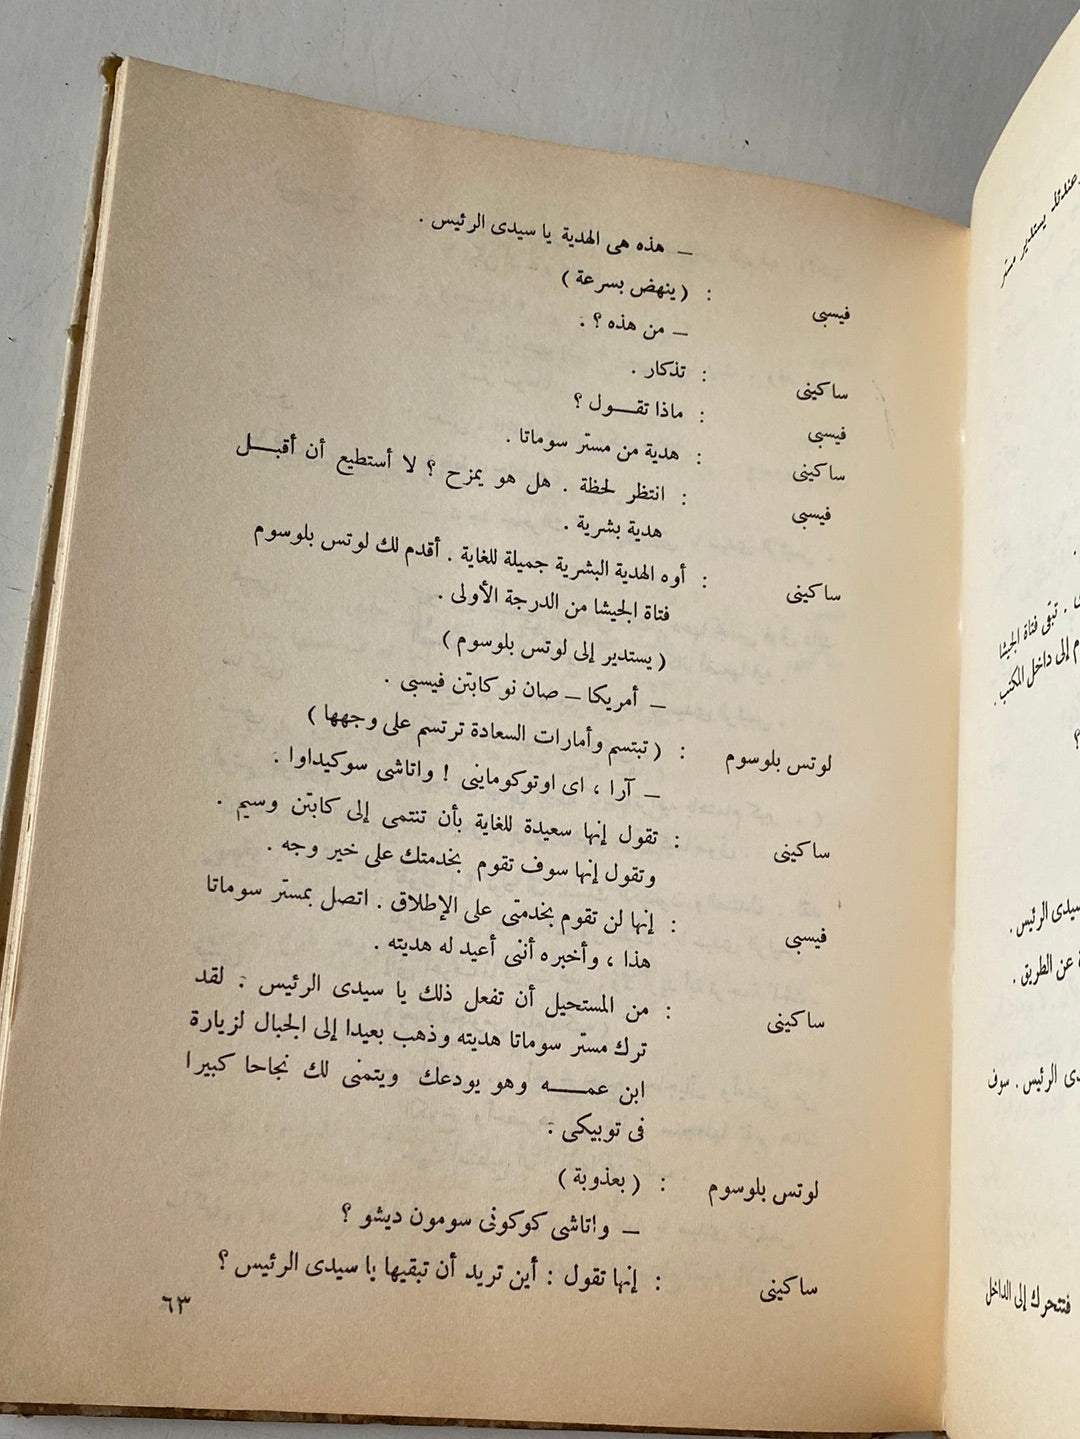 — هذه هى الهدية يا سيدى الرئيس .
فيسبى : ( ينهض بسرعة )
— من هذه ؟ .
ساكينى : تذكار .
فيسبى : ماذا تقـــول ؟
ساكينى : هدية من مستر سوماتا .
فيسبى : انتظر لحظة . هل هو يمزح ؟ لا أستطيع أن أقبـــل
هدية بشرية .
ساكينى : أوه الهدية البشرية جميلة للغاية . أقدم لك لوتس بلوسوم
فتاة الجيشا من الدرجة الأولى .
( يستدير إلى لوتس بلوسوم )
— أمريكا — صان نو كابتن فيسبى .
لوتس بلوسوم : ( تبتسم وأمارات السعادة ترتسم على وجهها )
— آرا ، اى اوتوكوماينى ! واتاشى سوكيداوا .
ساكينى : تقول إنها سعيدة للغاية بأن تنتمى إلى كابتن وسيم .
وتقول إنها سوف تقوم بخدمتك على خير وجه .
فيسبى : إنها لن تقوم بخدمتى على الإطلاق . اتصل بمستر سوماتا
هذا ، وأخبره أننى أعيد له هديته .
ساكينى : من المستحيل أن تفعل ذلك يا سيدى الرئيس . لقد
ترك مستر سوماتا هديته وذهب بعيدا إلى الجبال لزيارة
ابن عمــــه وهو يودعك ويتمنى لك نجاحا كبيرا
فى توبيكى .
لوتس بلوسوم : ( بعذوبة )
— واتاشى كوكونى سومون ديشو ؟
ساكينى : إنها تقول : أين تريد أن تبقيها يا سيدى الرئيس ؟
٦٣
يستدير مستر
. تبقى فتاة الجيشا
إلى داخل المكتب .
؟
سيدى الرئيس .
عن الطريق .
الرئيس . سوف
فتتحرك إلى الداخل